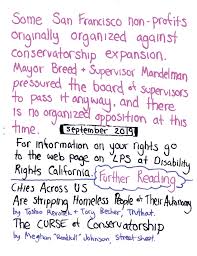 Some San Francisco non-profits
originally organized against
conservatorship expansion.
Mayor Breed + Supervisor Mandelman
pressured the board of supervisors
to pass it anyway, and there
is no organized opposition at this
time.
September 2019
For information on your rights go
to the web page on "LPS at Disability
Rights California.
Further Reading
Cities Across US
Are Stripping Homeless People of Their Autonomy
by Tasha and Tory Becker, Truthout.
The CURSE of Conservatorship
by Meghan "Roadkill" Johnson, Street Sheet.